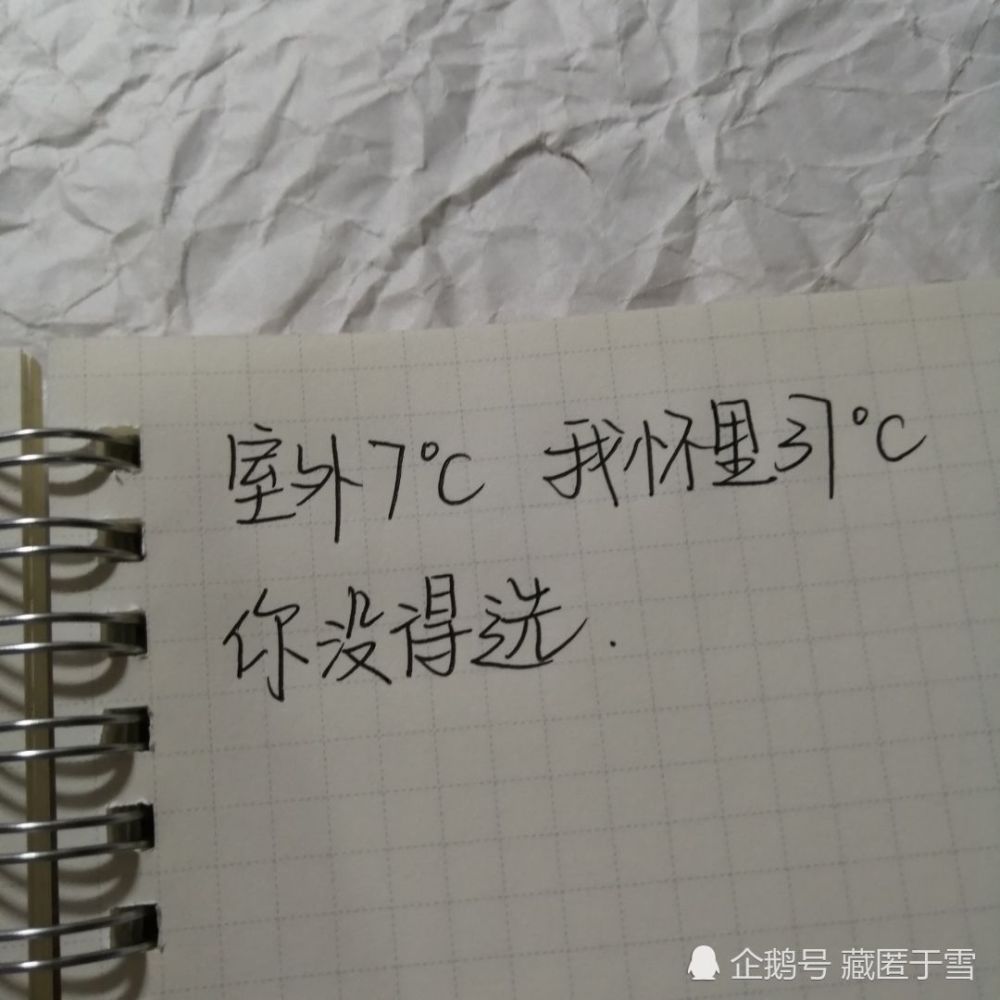 室外7℃ 我怀里37℃
你没得选.
企鹅号 藏匿于雪